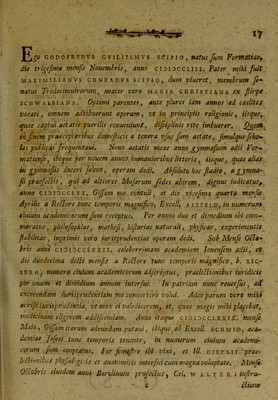 17
EGO GODOFREDVS GVILIELMVS SCIPIO, natus sum Vormatiae,
die trigesima mense Novembris, anno CIƆIƆCCLIII. Pater mihi fuit
MAXIMILIANVS CONRADVS SCIPIO, dum viveret, membrum se-
natus Tredecimvirorum, mater vero MARIA CHRISTIANA ex stirpe
SCHWALBIANA. Optimi parentes, ante plures iam annos ad coelites
vocati, omnem adhibuerunt operam, vt in principiis religionis, iisque,
quae captui aetatis puerilis conveniunt, disciplinis rite imbuerer. Quem
in finem praeceptoribus domesticis a tenera vsus sum aetate, simulque scho-
las publicas frequentavi. Nono aetatis meae anno gymnasium adii Vor-
matiense, ibique per novem annos humanioribus litteris, iisque, quae alias
in gymnasiis doceri solent, operam dedi. Absoluto hoc stadio, a gymna-
sii praefectis, qui ad altiores Musarum sedes abirem, dignus iudicatus,
anno CIƆIƆCCLXXI. Gissam me contuli, et die vicesima quarta mensis
Aprilis a Rectore tunc temporis magnifico, Excell. ALTEFELD, in numerum
civium academicorum sum receptus. Per annum duos et dimidium ibi com-
moratus, philosophiae, mathesi, historiae naturali, physicae experimentis
stabilitae, inprimis vero iurisprudentiae operam dedi. Sub Mense Octo-
bris anni CIƆIƆCCLXXIII. celeberrimam academiam Ienensem adii, et
die duodecima dicti mensis a Rectore tunc temporis magnifico, b. ZIC-
LERO, numero civium academicorum adscriptus, praelectionibus iuridicis
per vnum et dimidium annum interfui. In patriam nunc reversus, ad
exercendam iurisprudentiam me consectere volui. Adeo parum vero mihi
arrisit iurisprudentia, vt mox ei valedicerem, et, quae magis mihi placebat,
medicinam eligerem addiscendam. Anno itaque CIƆIƆCCLXXIX. mense
Maio, Gissam iterum adeundam putavi, ibique ab Excell. SCHMID, aca-
demiae fasces tunc temporis tenente, in numerum civium academi-
corum sum cooptatus. Per semestre ibi vixi, et Ill. DIETZII prae-
lectionibus physiologicis et anatomicis interfui cum magna voluptate. Mense
Octobris eiusdem anni Berolinum profectus, Cel. WALTERI instru-
C
ctione